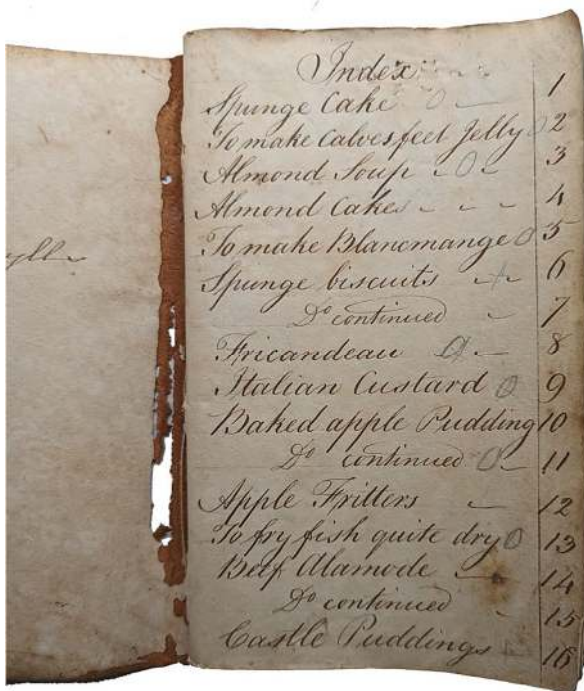 Index
Spunge Cake 0 — 1
To make Calvesfeet Jelly 0 2
Almond Soup - 0 - 3
Almond Cakes - - - 4
To make Blancmange 0 5
Spunge biscuits - + 6
Do continued - 7
Fricandeau 0 - 8
Italian Custard 0 9
Baked apple Pudding 10
Do continued 0 - 11
Apple Fritters - 12
To fry fish quite dry 0 13
Beef Alamode - 14
Do continued - 15
Castle Puddings 16